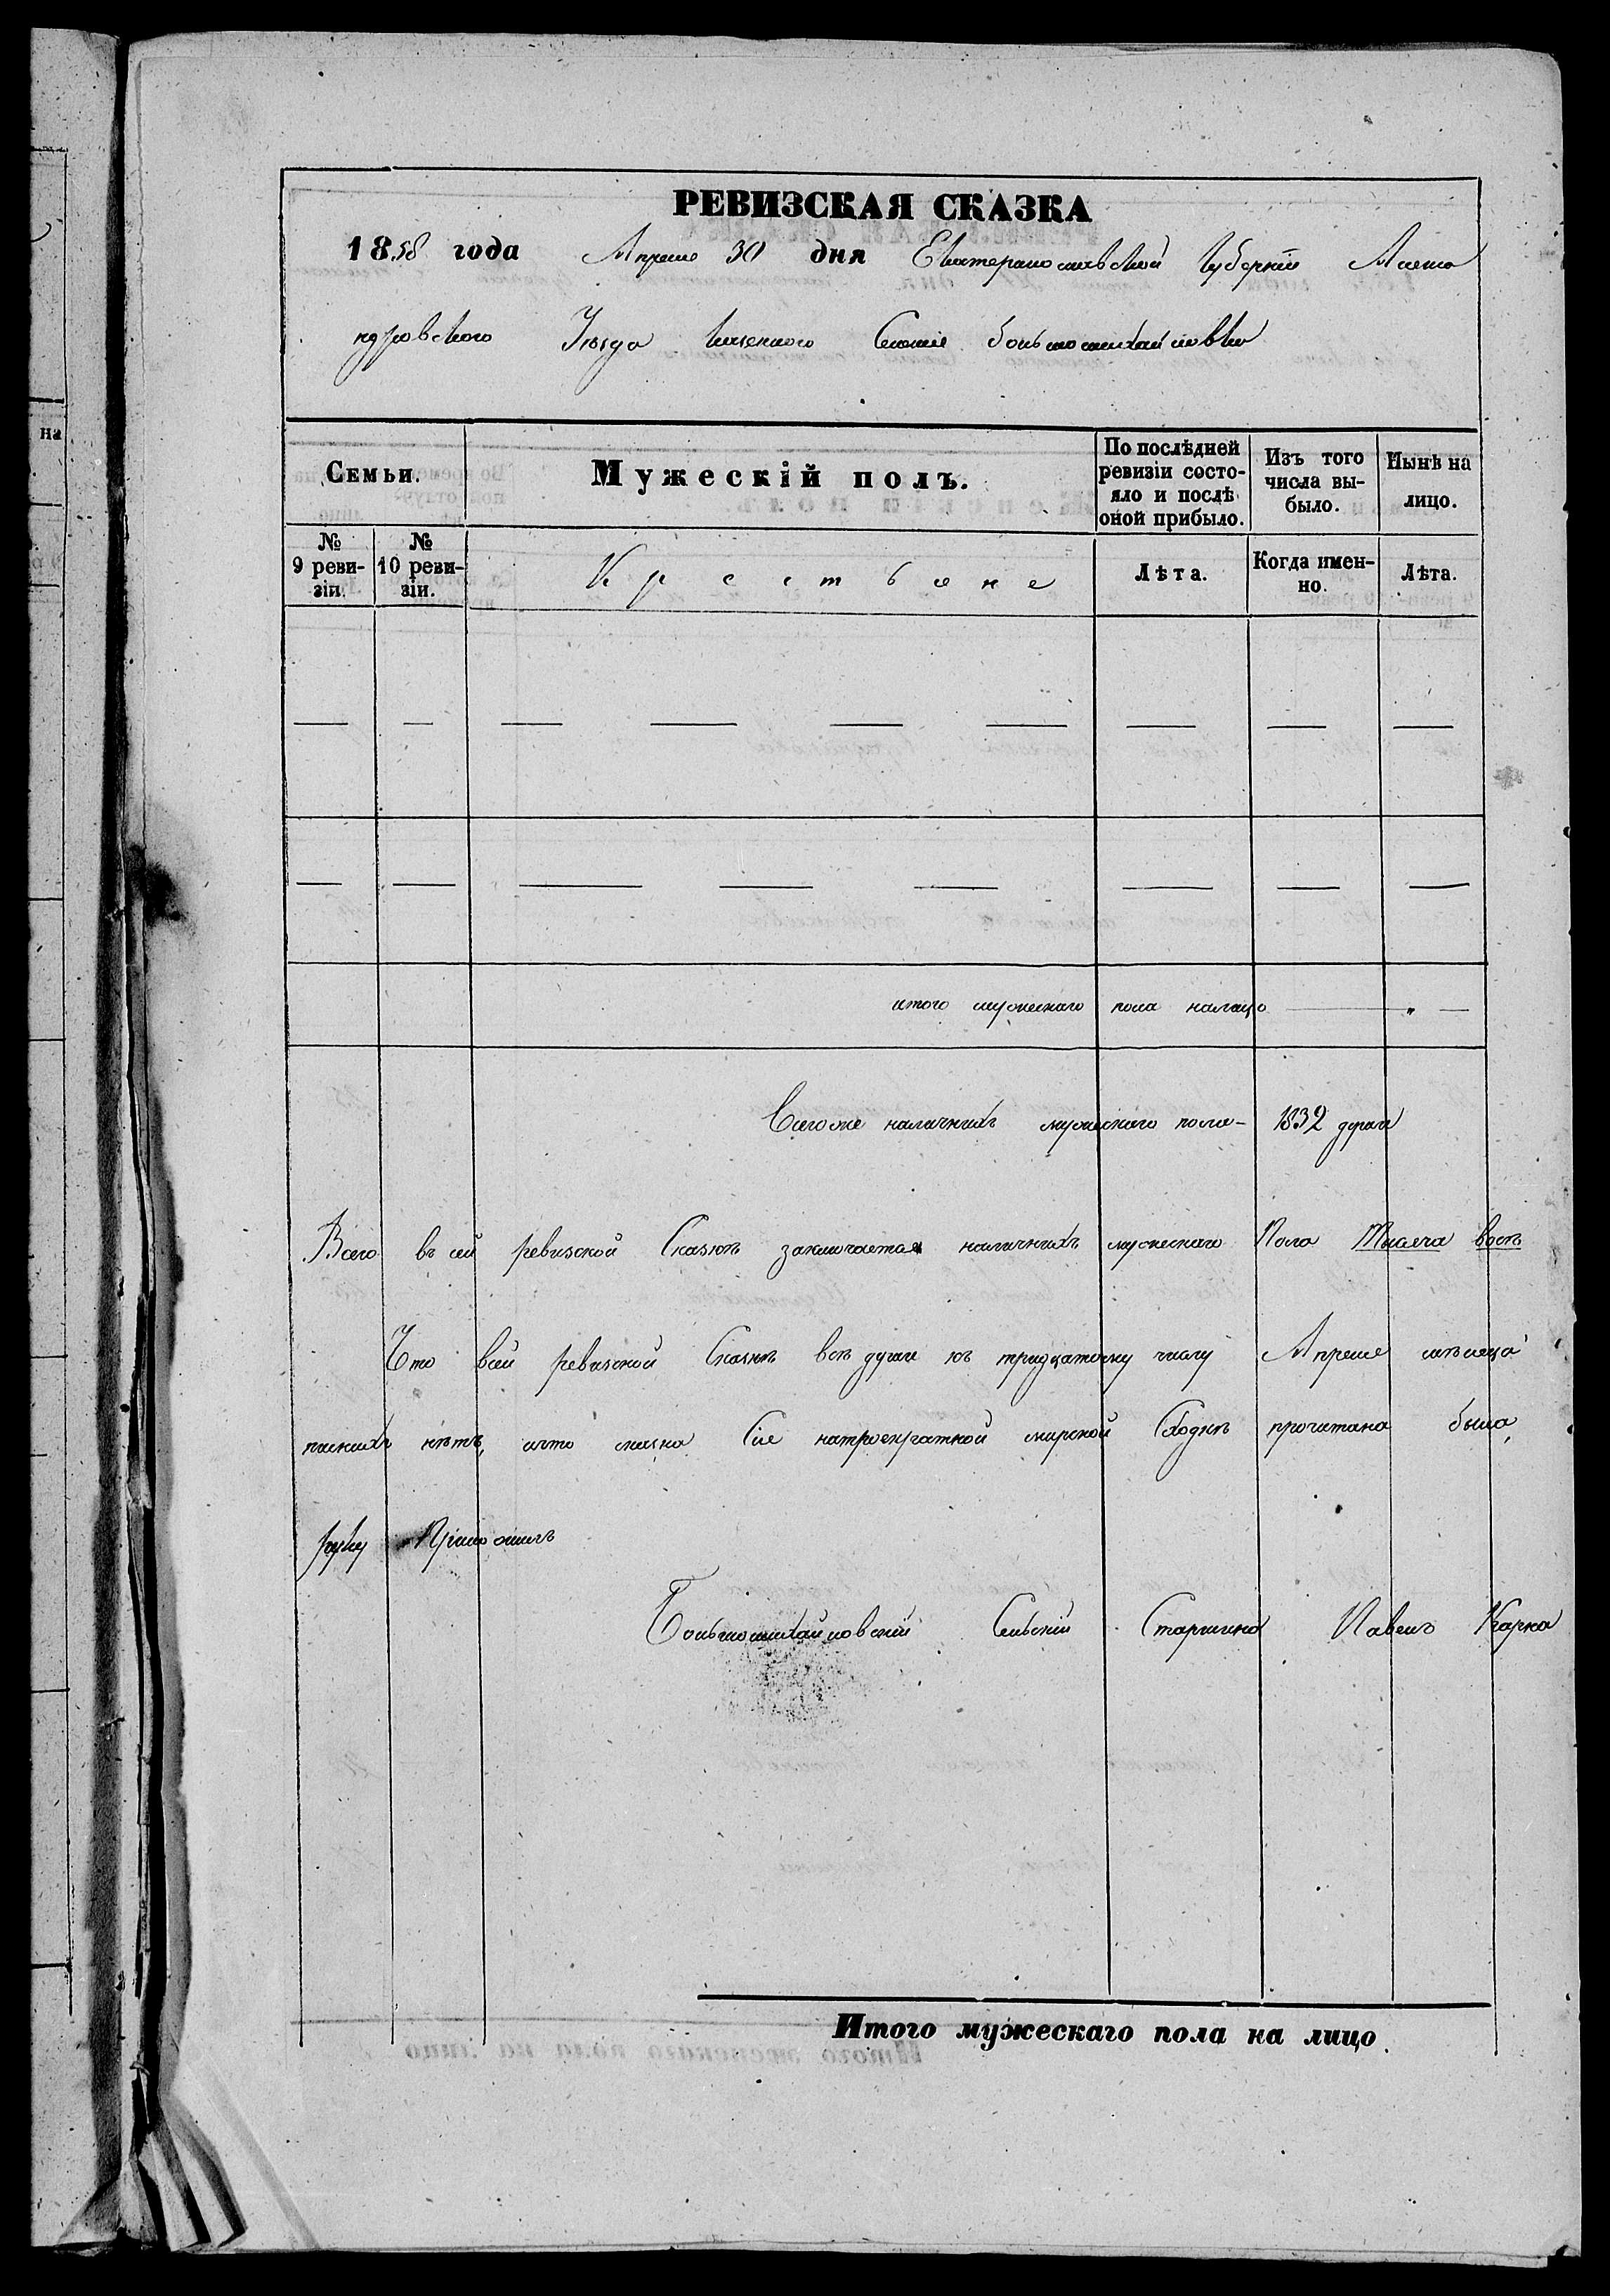 РЕВИЗСКАЯ СКАЗКА
1858 года Апреля 30 дня Екатеринославской Губерніи Алекса
ндровского Уезда казенного Селенія большомихайловки
Семьи.
Мужескій полъ.
По послѣдней ревизіи состояло и послѣ оной прибыло.
Изъ того числа выбыло.
Нынѣ на лицо.
№ 9 ревизіи.
№ 10 ревизіи.
Крестьяне
Лѣта.
Когда именно.
Лѣта.
итого мужескаго пола налицо
Всего же наличнихъ мужескаго пола - 1832 души
Всего въ сей ревизской Сказкѣ заключается наличнихъ мужескаго Пола Тысяча восѣ
Что всей ревизской Сказкѣ всѣ души къ тридцатому числу Апреля мѣсяца
писнихъ нѣтъ, ичто сказка Сія натроекратной мирской Сходкѣ прочитана была,
руку Приложилъ
Большомихайловскій Сельскій Старшина Павелъ Карна
Итого мужескаго пола на лицо
на